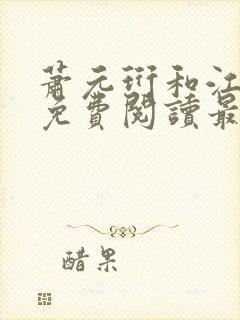 萧元衍和江
免費閱讀最
醋果